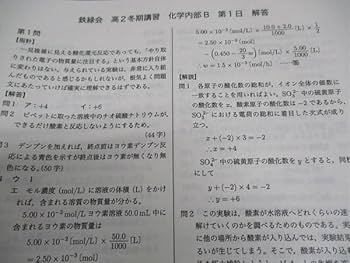 鉄緑会 高2冬期講習 化学内部B 第1日 解答
第1問
【指針】
一見複雑に見える酸化還元反応であっても,「やり取
りされた電子の物質量に注目する」という基本方針自体
に変わりはない。与えられている実験は,非常に入り組
んだものであると感じるかもしれないが,根気よく問題
文にあたっていけば確実に理解できるはずである。
【解説】
問1 ア:+4 イ:+6
問2 ピペットに取った溶液中のチオ硫酸ナトリウムが,
できるだけ酸素と反応しないようにするため。
(44字)
問3 デンプンを加えれば,終点前はヨウ素デンプン反
応による青色を示すが終点後はヨウ素が無くなり無
色になる。(50字)
ウ 1
エ モル濃度 (mol/L) に溶液の体積 (L) をかけ
れば,含まれる溶質の物質量が分かる。
5.00×10⁻³ (mol/L) ヨウ素溶液 50.0 mL 中に
含まれるヨウ素の物質量は
5.00×10⁻³ (mol/L) × 50.0/1000 (L)
5.00×10⁻³ (mol/L) × 10.0+2.0/1000 (L) × 1/2
=2.50×10⁻⁴ (mol)
問1 各原子の酸化数の総和が,イオン全体の価数に
一致することを用いればよい。SO₃²⁻ 中の硫黄原子
の酸化数を x,酸素原子の酸化数は −2 であるから,
SO₃²⁻ における電荷の総和に着目した次式が成り
立つ。
x+(−2)×3=−2
∴ x=+4
SO₄²⁻ 中の硫黄原子の酸化数を y とすると,同様に
して
y+(−2)×4=−2
∴ y=+6
問2 この実験は,酸素が水溶液へどれくらいの速
解するかを調べるためのものである。実
に他の場所から酸素が入り込んでは,実験結
るいが生じてしまう。そこで,